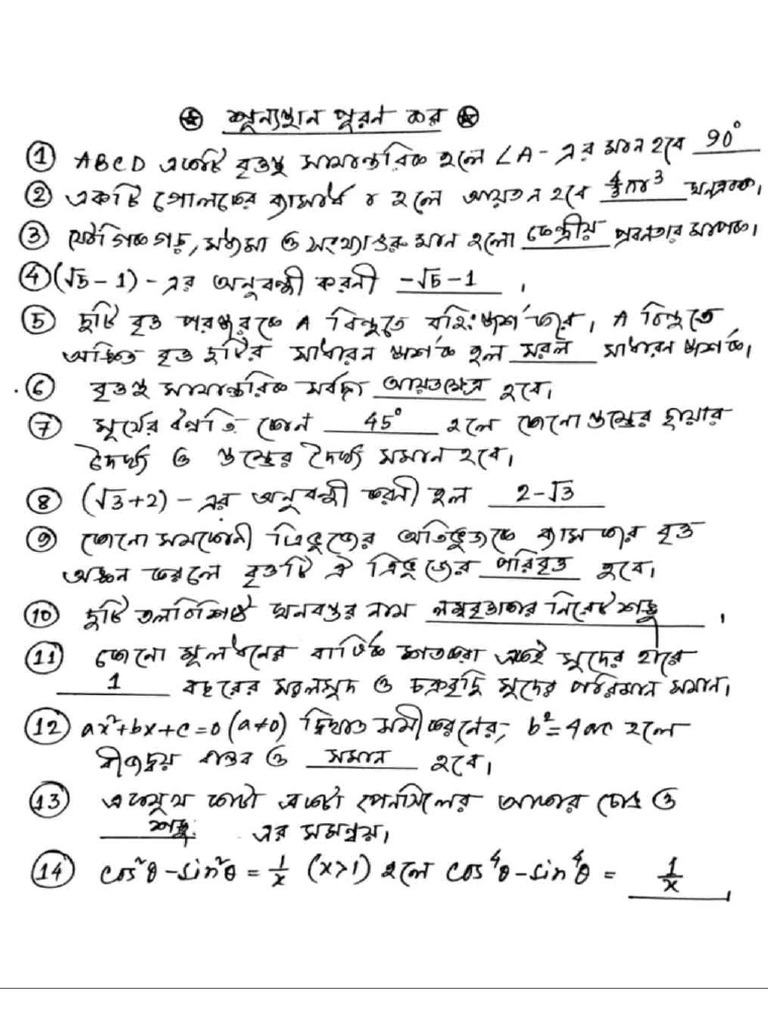 শূন্যস্থান পূরণ কর
① ABCD একটি বৃত্তস্থ সামান্তরিক হলে ∠A - এর মান হবে 90°
② একটি গোলকের ব্যাসার্ধ r হলে আয়তন হবে 4/3πr³ ঘনএকক।
③ যৌগিক গড়, মধ্যমা ও সংখ্যাগুরু মান হলো কেন্দ্রীয় প্রবনতার মাপক।
④ (√5 - 1) - এর অনুবন্ধী করনী -√5-1 ।
⑤ দুটি বৃত্ত পরস্পরকে A বিন্দুতে বহিঃস্পর্শ করে। A বিন্দুতে
অঙ্কিত বৃত্ত দুটির সাধারন স্পর্শক হল সরল সাধারন স্পর্শক।
⑥ বৃত্তস্থ সামান্তরিক সর্বদা আয়তক্ষেত্র হবে।
⑦ সূর্যের উন্নতি কোণ 45° হলে কোনো স্তম্ভের ছায়ার
দৈর্ঘ্য ও স্তম্ভের দৈর্ঘ্য সমান হবে।
⑧ (√3+2) - এর অনুবন্ধী করনী হল 2-√3
⑨ কোনো সমকোনী ত্রিভুজের অতিভুজকে ব্যাস করে বৃত্ত
অঙ্কন করলে বৃত্তটি ঐ ত্রিভুজের পরিবৃত্ত হবে।
⑩ দুটি তলবিশিষ্ট ঘনবস্তুর নাম লম্ববৃত্তাকার নিরেট শঙ্কু ।
⑪ কোনো মূলধনের বার্ষিক শতকরা একই সুদের হারে
1 বছরের সরলসুদ ও চক্রবৃদ্ধি সুদের পরিমান সমান।
⑫ ax²+bx+c=0 (a≠0) দ্বিঘাত সমীকরনের, b²=4ac হলে
বীজদ্বয় বাস্তব ও সমান হবে।
⑬ একমুখ কাটা একটা পেনসিলের আকার চোঙ ও
শঙ্কু এর সমন্বয়।
⑭ cos²θ-sin²θ = 1/x (x>1) হলে cos⁴θ-sin⁴θ = 1/x ।